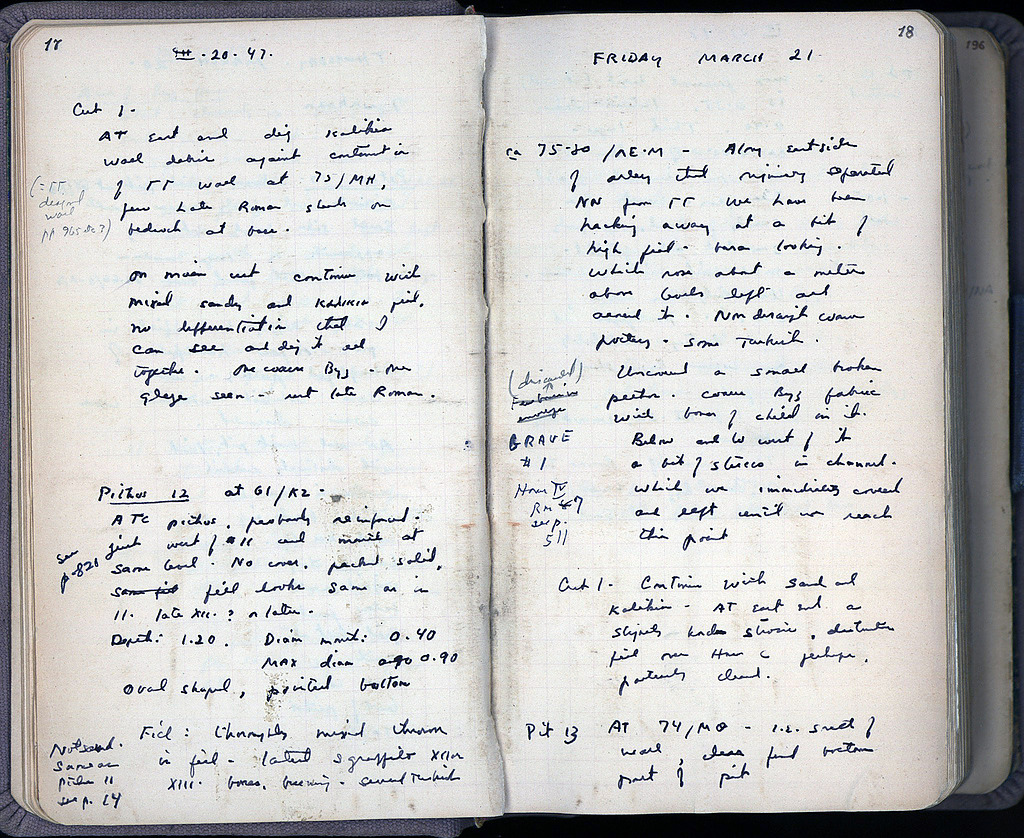 17
III-20-47.
Cut 1.
AT east end dig Kalikia
wall debris against continuation
of TT wall at 75/MH,
few Late Roman sherds on
bedrock at base.
(= TT
wall
pp 965
On main cut continue with
mixed sandy and Kalikia fill,
no differentiation that I
can see and dig it all
together. One coarse Byz - one
glaze seen - not late Roman.
Pithos 12 at 61/KZ -
ATC pithos, probably reinforced.
just west of #11 and mouth at
same level. No cover, packed solid,
fill looks same as in
11. late XII. ? or later.
Depth: 1.20. Diam mouth: 0.40
MAX diam 0.90
Oval shaped, pointed bottom
see
p. 820
Fill: thoroughly mixed thrown
in fill - latest sgraffito XII or
XIII. bones, - several Turkish
Not saved.
Same as
Pithos 11
see p. 14
18
FRIDAY MARCH 21.
ca 75-80 /ME-M - Along east side
of area that originally separated
NN from TT we have been
hacking away at a bit of
high fill - looking.
Which rose about a meter
above levels left and
around it. Nondescript coarse
pottery - some Turkish.
Uncovered a small broken
pithos. coarse Byz fabric
with bones of child in it.
Below and to west of it
a bit of stucco in channel.
which we immediately covered
and left until we reach
this point
(discarded)
GRAVE
#1
House IV
Rm 7
see p.
511
Cut 1. Continue with sand and
Kalikia - AT east end a
slightly harder stratum,
fill over House C perhaps,
partially cleared.
Pit 13 AT 74/MQ - i.e. south of
wall, clean find bottom
part of pit